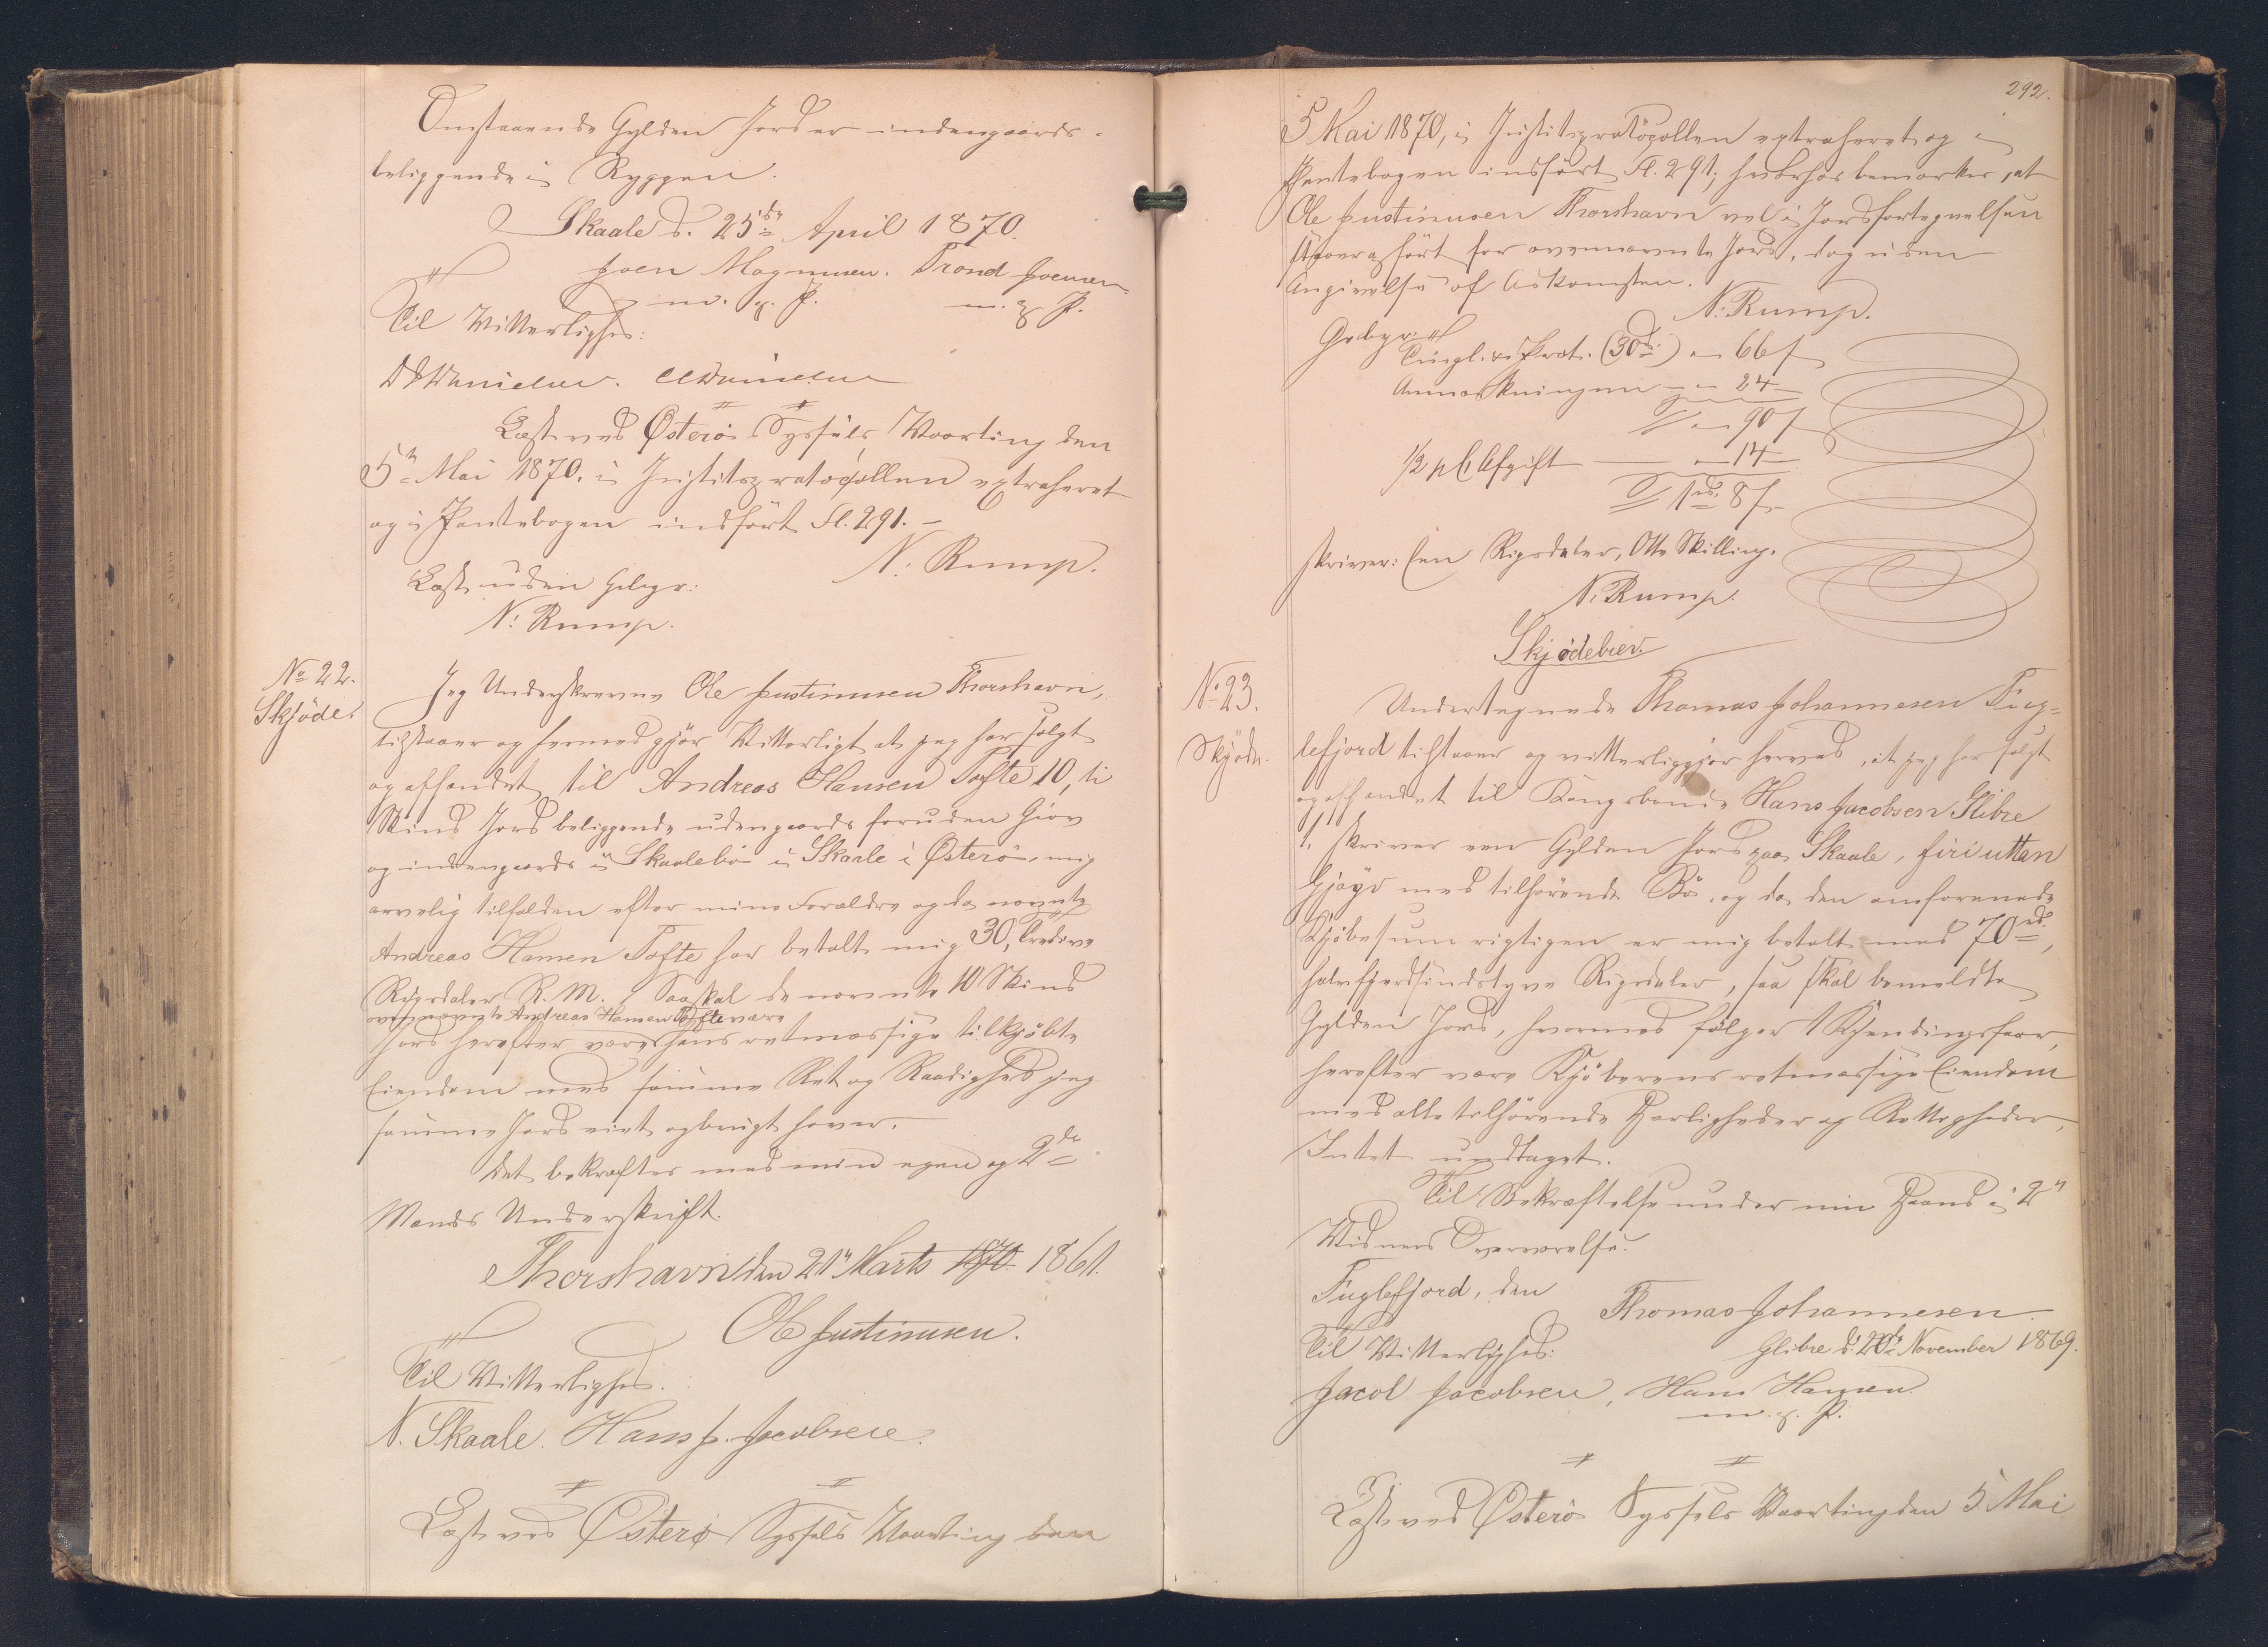 Omstaaende Gylden Jord er indengaards
beliggende i Ryggen.
Skaale d. 25de April 1870.
Joen Magnusen. Trond Joensen
m. p. P. m. p. P.
Til Vitterlighed:
DDanielsen. Danielsen
Læst ved Østerö Syssels Vaarting den
5te Mai 1870, i Justitsprotocollen extraheret
og i Pantebogen indfört Fl. 291. –
N: Rump.
Læst uden Gebyr:
N: Rump.
No 22.
Skjöde.
Jeg Underskrevne Ole Justinusen Thorshavn,
tilstaaer og hermed gjör Vitterligt at jeg har solgt
og afhændet til Andreas Hansen Tofte 10, ti
Skind Jord beliggende udengaards foruden Giov
og indengaards i Skaalebö i Skaale i Österö, mig
arvelig tilfalden efter mine Forældre og da nævnte
Andreas Hansen Tofte har betalt mig 30, Tredive
Rigsdaler R. M. Saa skal de nævnte 10 Skind
ovennævnte Andreas Hansen Tofte være
Jord herefter være hans retmæssige tilkjöbte
Eiendom med samme Ret og Raadighed jeg
samme Jord eiet og brugt haver.
Det bekræftes med min egen og 2de
Mænds Underskrift.
Thorshavn den 21n Marts 1870 1861.
Ole Justinusen.
Til Vitterlighed.
N. Skaale. Hans J. Jacobsen.
Læst ved Österö Syssels Vaarting den
292.
5 Mai 1870, i Justitsprotocollen extraheret og i
Pantebogen indfört Fl. 291; hvorhos bemærkes, at
Ole Justinusen Thorshavn vel i Jordfortegnelsen
staaer anfört for ovennævnte Jord, dog uden
Angivelse af Adkomsten.
N: Rump.
Gebyr
Tingl. & Prot. (30rd) – 66 ſ
Anmærkningen – – 24
– 90 ſ
1/2 pC Afgift – 14
1rd 8 ſ
skriver: Een Rigsdaler, Otte Skilling.
N: Rump.
Skjödebrev.
No 23.
Skjöde.
Undertegnede Thomas Johannesen Fug-
lefjord tilstaaer og vitterliggjör herved, at jeg har solgt
og afhændet til Kongsbonde Hans Jacobsen Glibre
1, skriver een Gylden Jord paa Skaale, firi uttan
Gjögv med tilhörende Bö, og da den omforenede
Kjöbesum rigtigen er mig betalt med 70rd,
halvfjerdsindstyve Rigsdaler, saa skal bemeldte
Gylden Jord, hvormed fölger 1 Kjendingsfaar,
herefter være Kjöberens retmæssige Eiendom
med alle tilhörende Herligheder og Rettigheder,
Intet undtaget.
Til Bekræftelse under min Haand i 2n
Vidners Overværelse.
Fuglefjord, den
Thomas Johannesen
Til Vitterlighed:
Glibre d. 20de November 1869.
Jacob Jacobsen, Hans Hansen
m. p. P.
Læst ved Österö Syssels Vaarting den 5 Mai